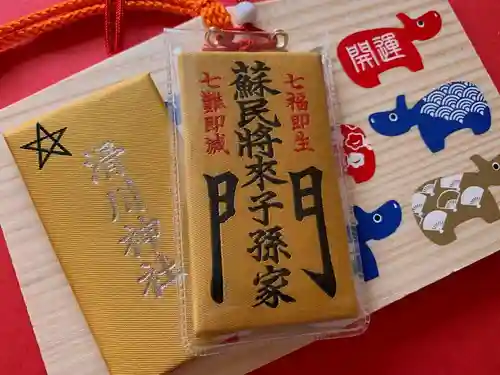 開運
七福即生
蘇民將來子孫家門
七難即滅
滑川神社